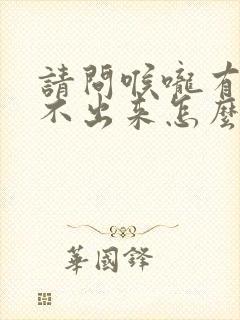 請問喉嚨有
不出來怎麼
華國鋒